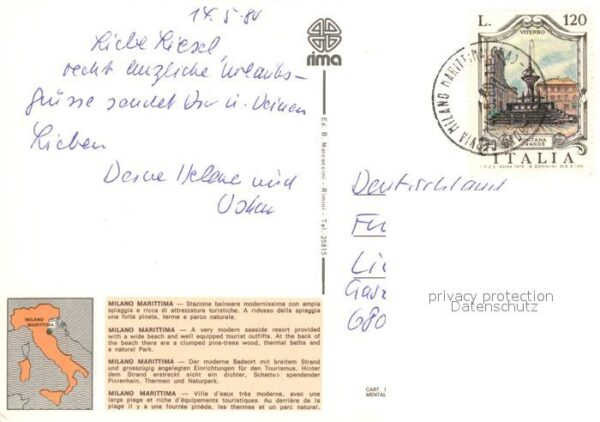 14.5.80
Liebe Liesel,
recht herzliche Urlaubs-
grüsse sendet Dir u. Deinen
Lieben
Deine Helene und
rima
Ed. B. Marcaccini - Rimini - Tel. 25815
L. 120
VITERBO
FONTANA
GRANDE
ITALIA
CERVIA MILANO MARITTIMA
Deutschland
680
privacy protection
Datenschutz
MILANO
MARITTIMA
MILANO MARITTIMA — Stazione balneare modernissima con ampia
spiaggia e ricca di attrezzature turistiche. A ridosso della spiaggia
una folta pineta, terme e parco naturale.
MILANO MARITTIMA — A very modern seaside resort provided
with a wide beach and well equipped tourist outfitts. At the back of
the beach there are a clumped pine-trees wood, thermal baths and
a natural Park.
MILANO MARITTIMA — Der moderne Badeort mit breitem Strand
und grosszügig angelegten Einrichtungen für den Tourismus. Hinter
dem Strand erstreckt sicht ein dichter, Schatten spendender
Pinienhain, Thermen und Naturpark.
MILANO MARITTIMA — Ville d'eaux très moderne, avec une
large plage et riche d'équipements touristiques. Au derrière de la
plage il y a une fourrée pinède, les thermes et un parc naturel.
CART.
MENTAL